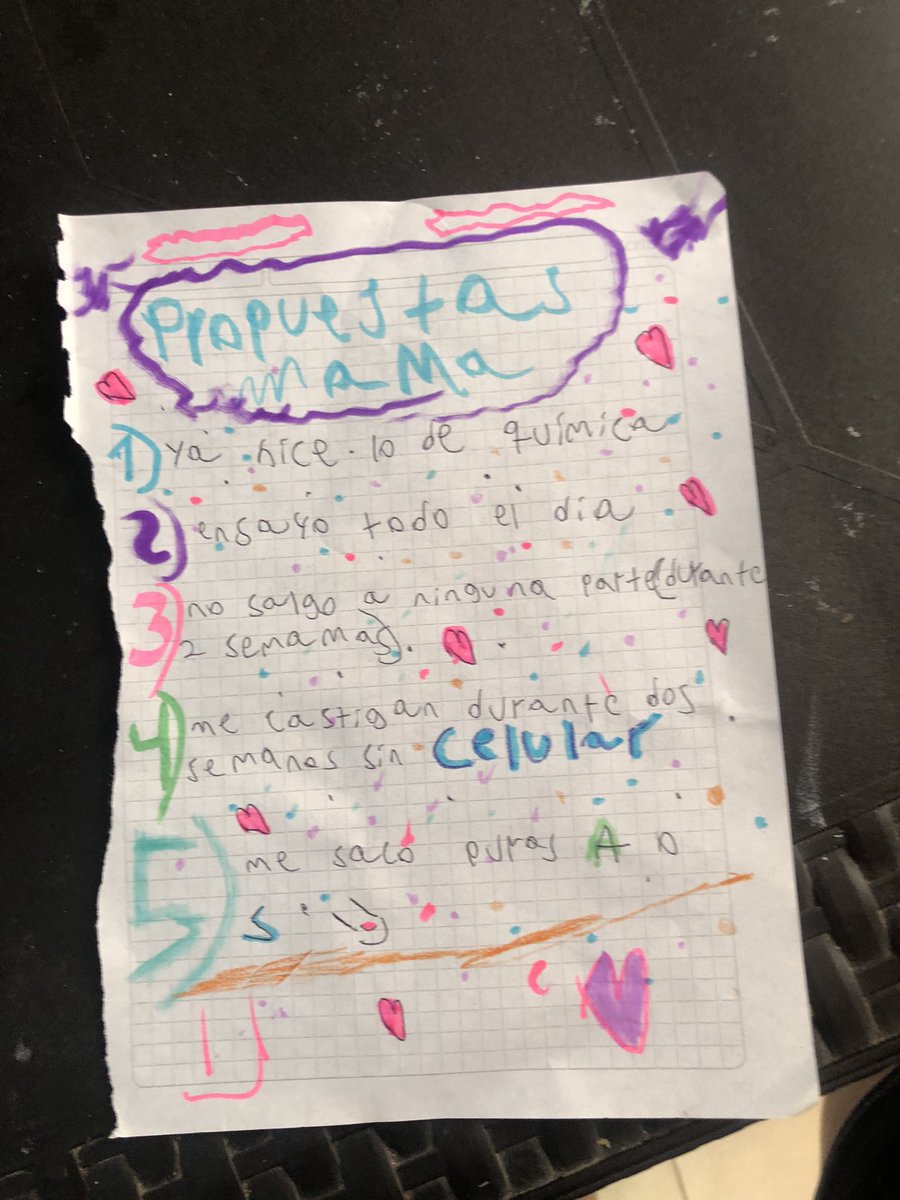 Propuestas
mama
1) Ya hice lo de química
2) ensayo todo el día
3) no salgo a ninguna parte (durante
2 semanas).
4) me castigan durante dos
semanas sin celular
5) me saco puras A o
S :)